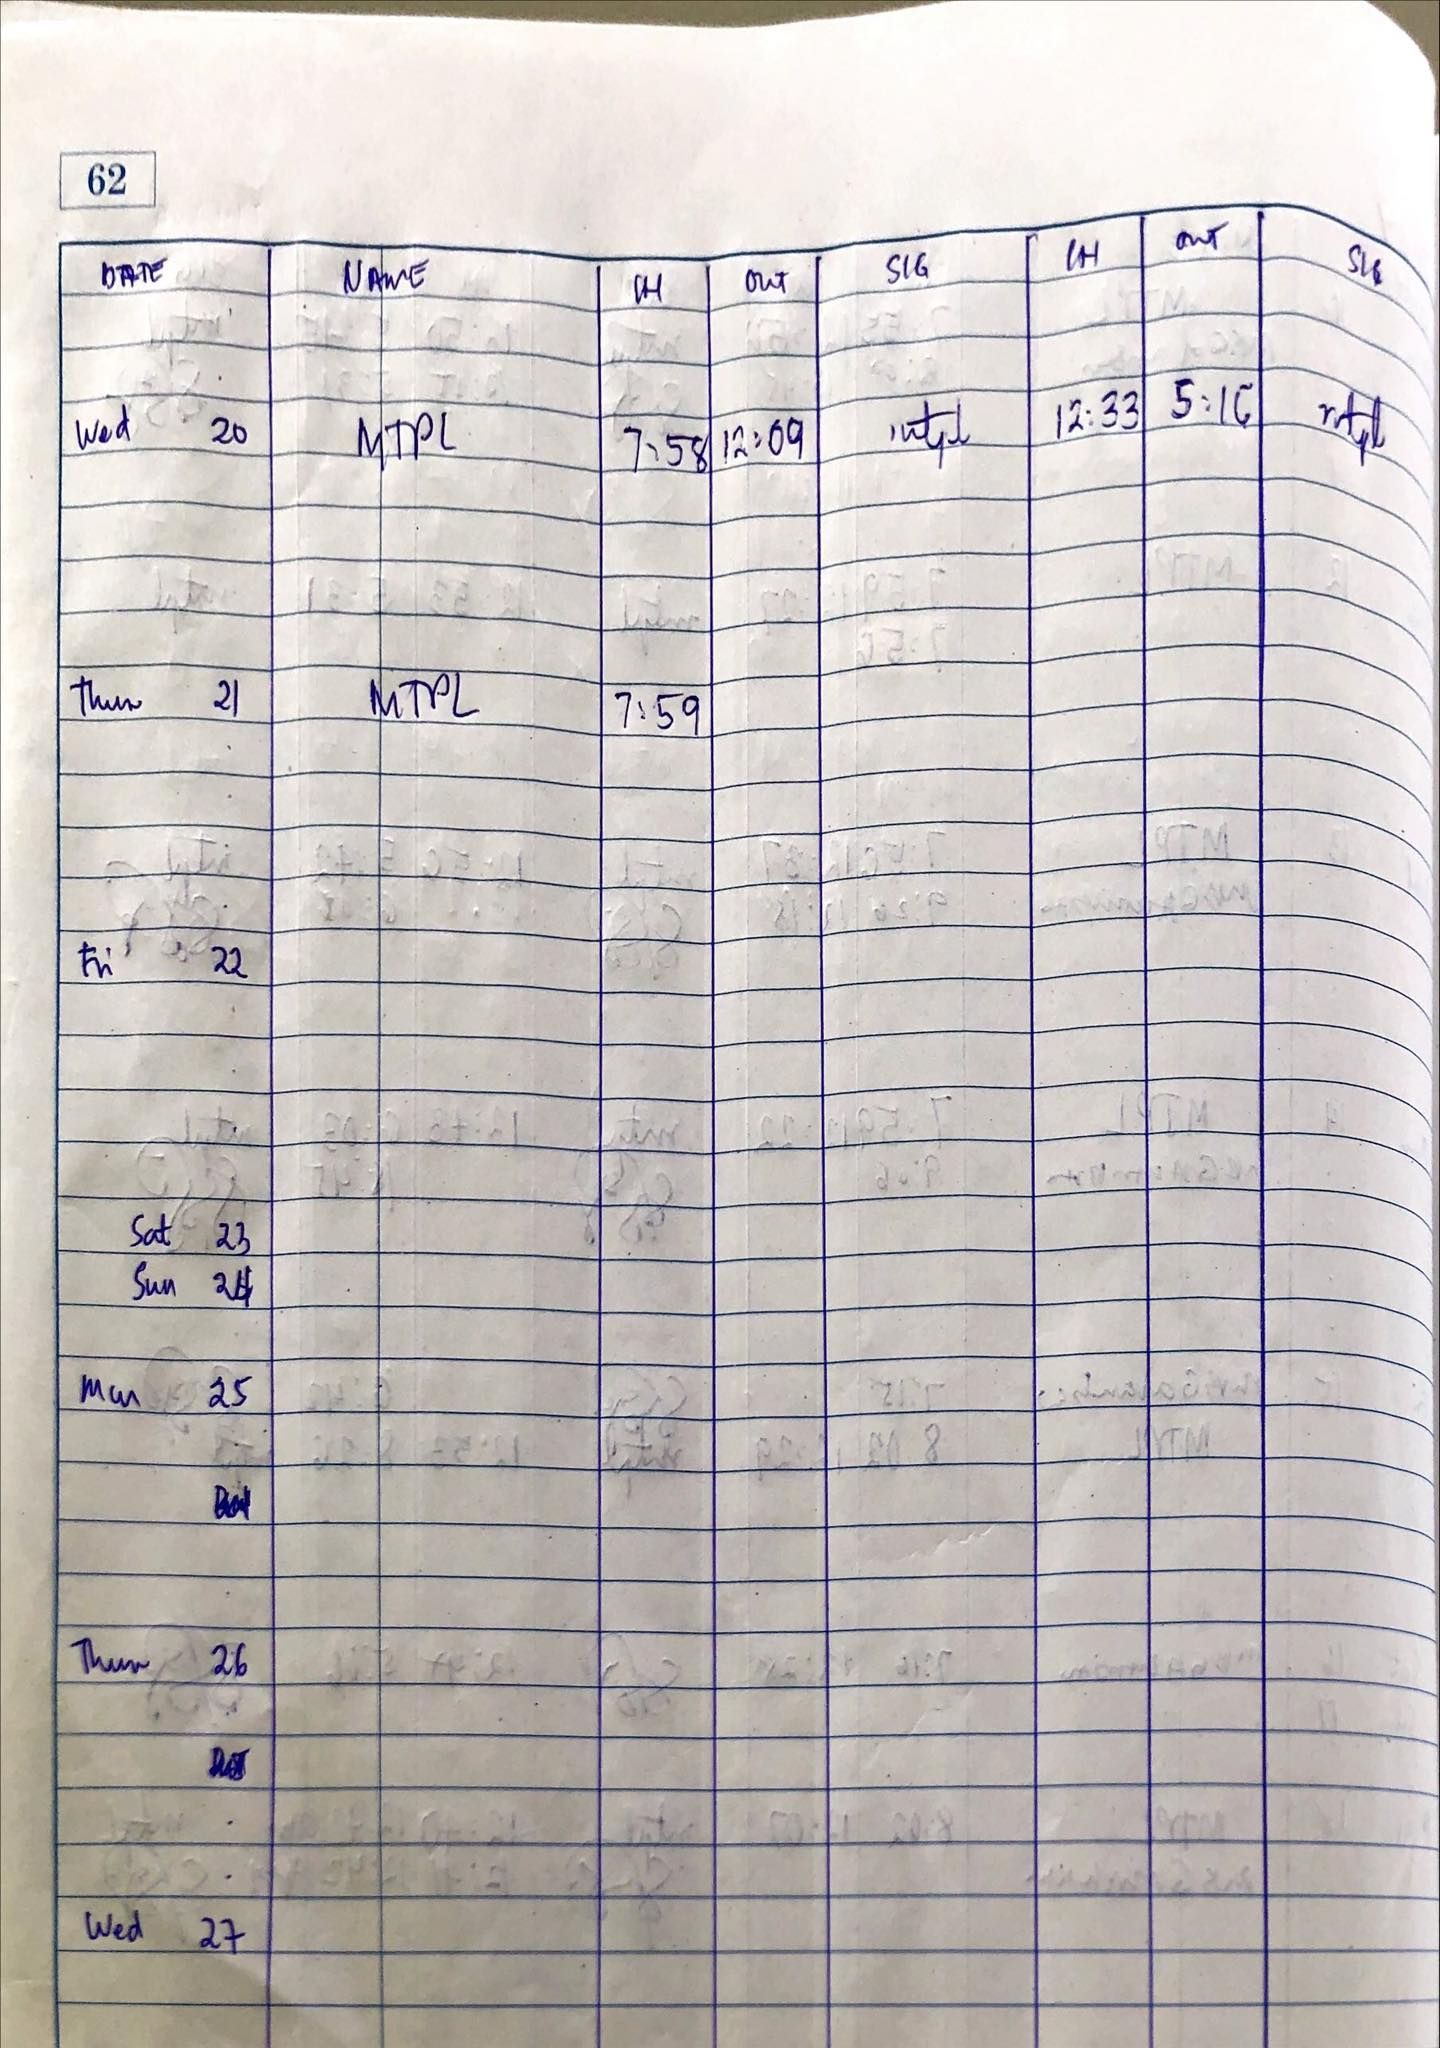 62
DATE NAME IN OUT SIG IN OUT SIG
Wed 20 MTPL 7:58 12:09 mtpl 12:33 5:16 mtpl
Thur 21 MTPL 7:59
Fri 22
Sat 23
Sun 24
Mon 25
Thur 26
Wed 27